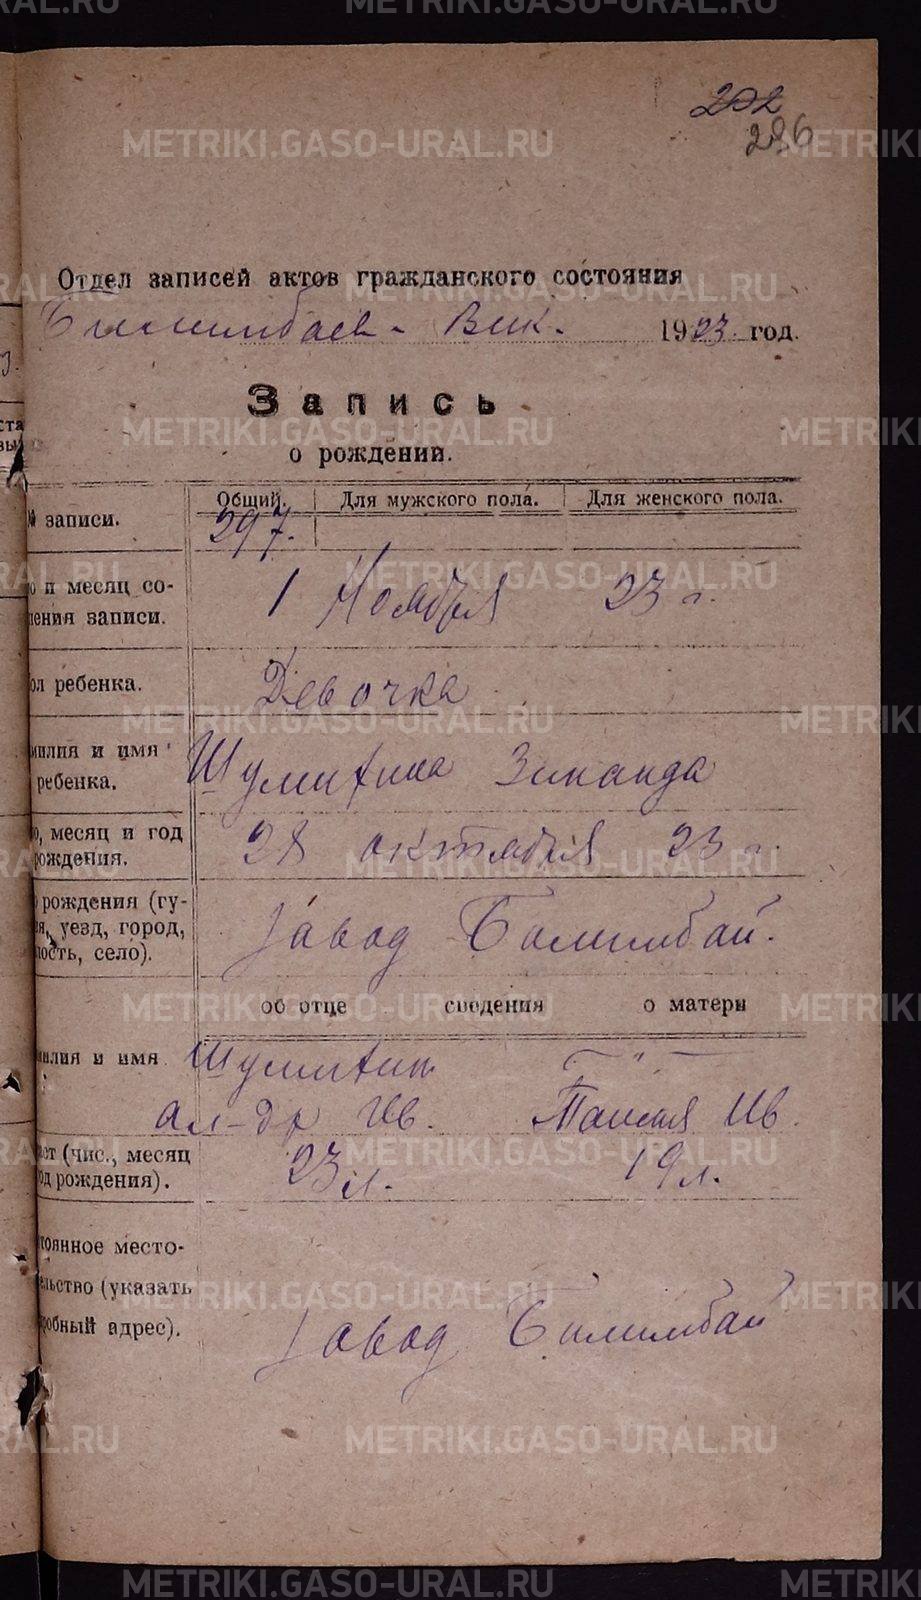 202
296
Отдел записей актов гражданского состояния
Билимбаев. Вик. 1923 год.
Запись
о рождении.
Общий. Для мужского пола. Для женского пола.
№ записи. 297.
о и месяц со-
ления записи. 1 Ноября 23 г.
ол ребенка. Девочка
милия и имя
ребенка. Шумихина Зинаида
о, месяц и год
рождения. 28 октября 23 г.
рождения (гу-
я, уезд, город,
лость, село). завод Билимбай.
об отце сведения о матери
милия и имя Шумихин — " —
Ал-др Ив. Таисия Ив.
аст (чис., месяц
од рождения). 23 л. 19 л.
тоянное место-
ельство (указать
робный адрес). завод Билимбай
METRIKI.GASO-URAL.RU